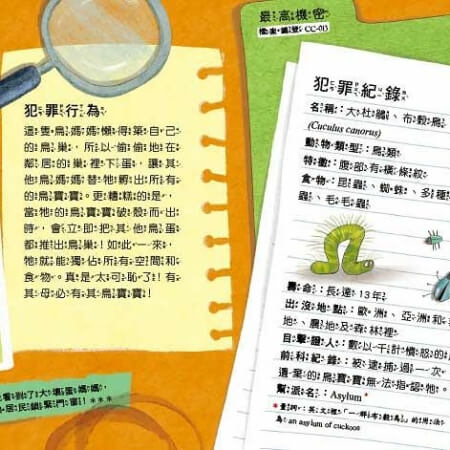 犯罪行為
這隻鳥媽媽懶得築自己
的鳥巢，所以偷偷地在
鄰居的巢裡下蛋，讓其
他鳥媽媽替牠孵出所有
的鳥寶寶。更糟糕的是，
當牠的鳥寶寶破殼而出
時，會立即把其他鳥蛋
都推出鳥巢！如此一來，
牠就能獨佔所有空間和
食物。真是太可恥了！有
其母必有其鳥寶寶！
看到了大壞蛋媽媽，
居民鎖緊門窗！
最高機密
檔案編號：CC-013
犯罪紀錄
名稱：大杜鵑、布穀鳥
(Cuculus canorus)
動物類型：鳥類
特徵：腹部有橫條紋
食物：昆蟲、蜘蛛、多種
蟲、毛毛蟲
壽命：長達13年
出沒地點：歐洲、亞洲和
地、農地及森林裡
目擊證人：數以千計憤怒的
前科紀錄：被逮捕過一次，
遺棄的鳥寶寶無法指認牠。
幫派名：Asylum*
為 an asylum of cuckoos